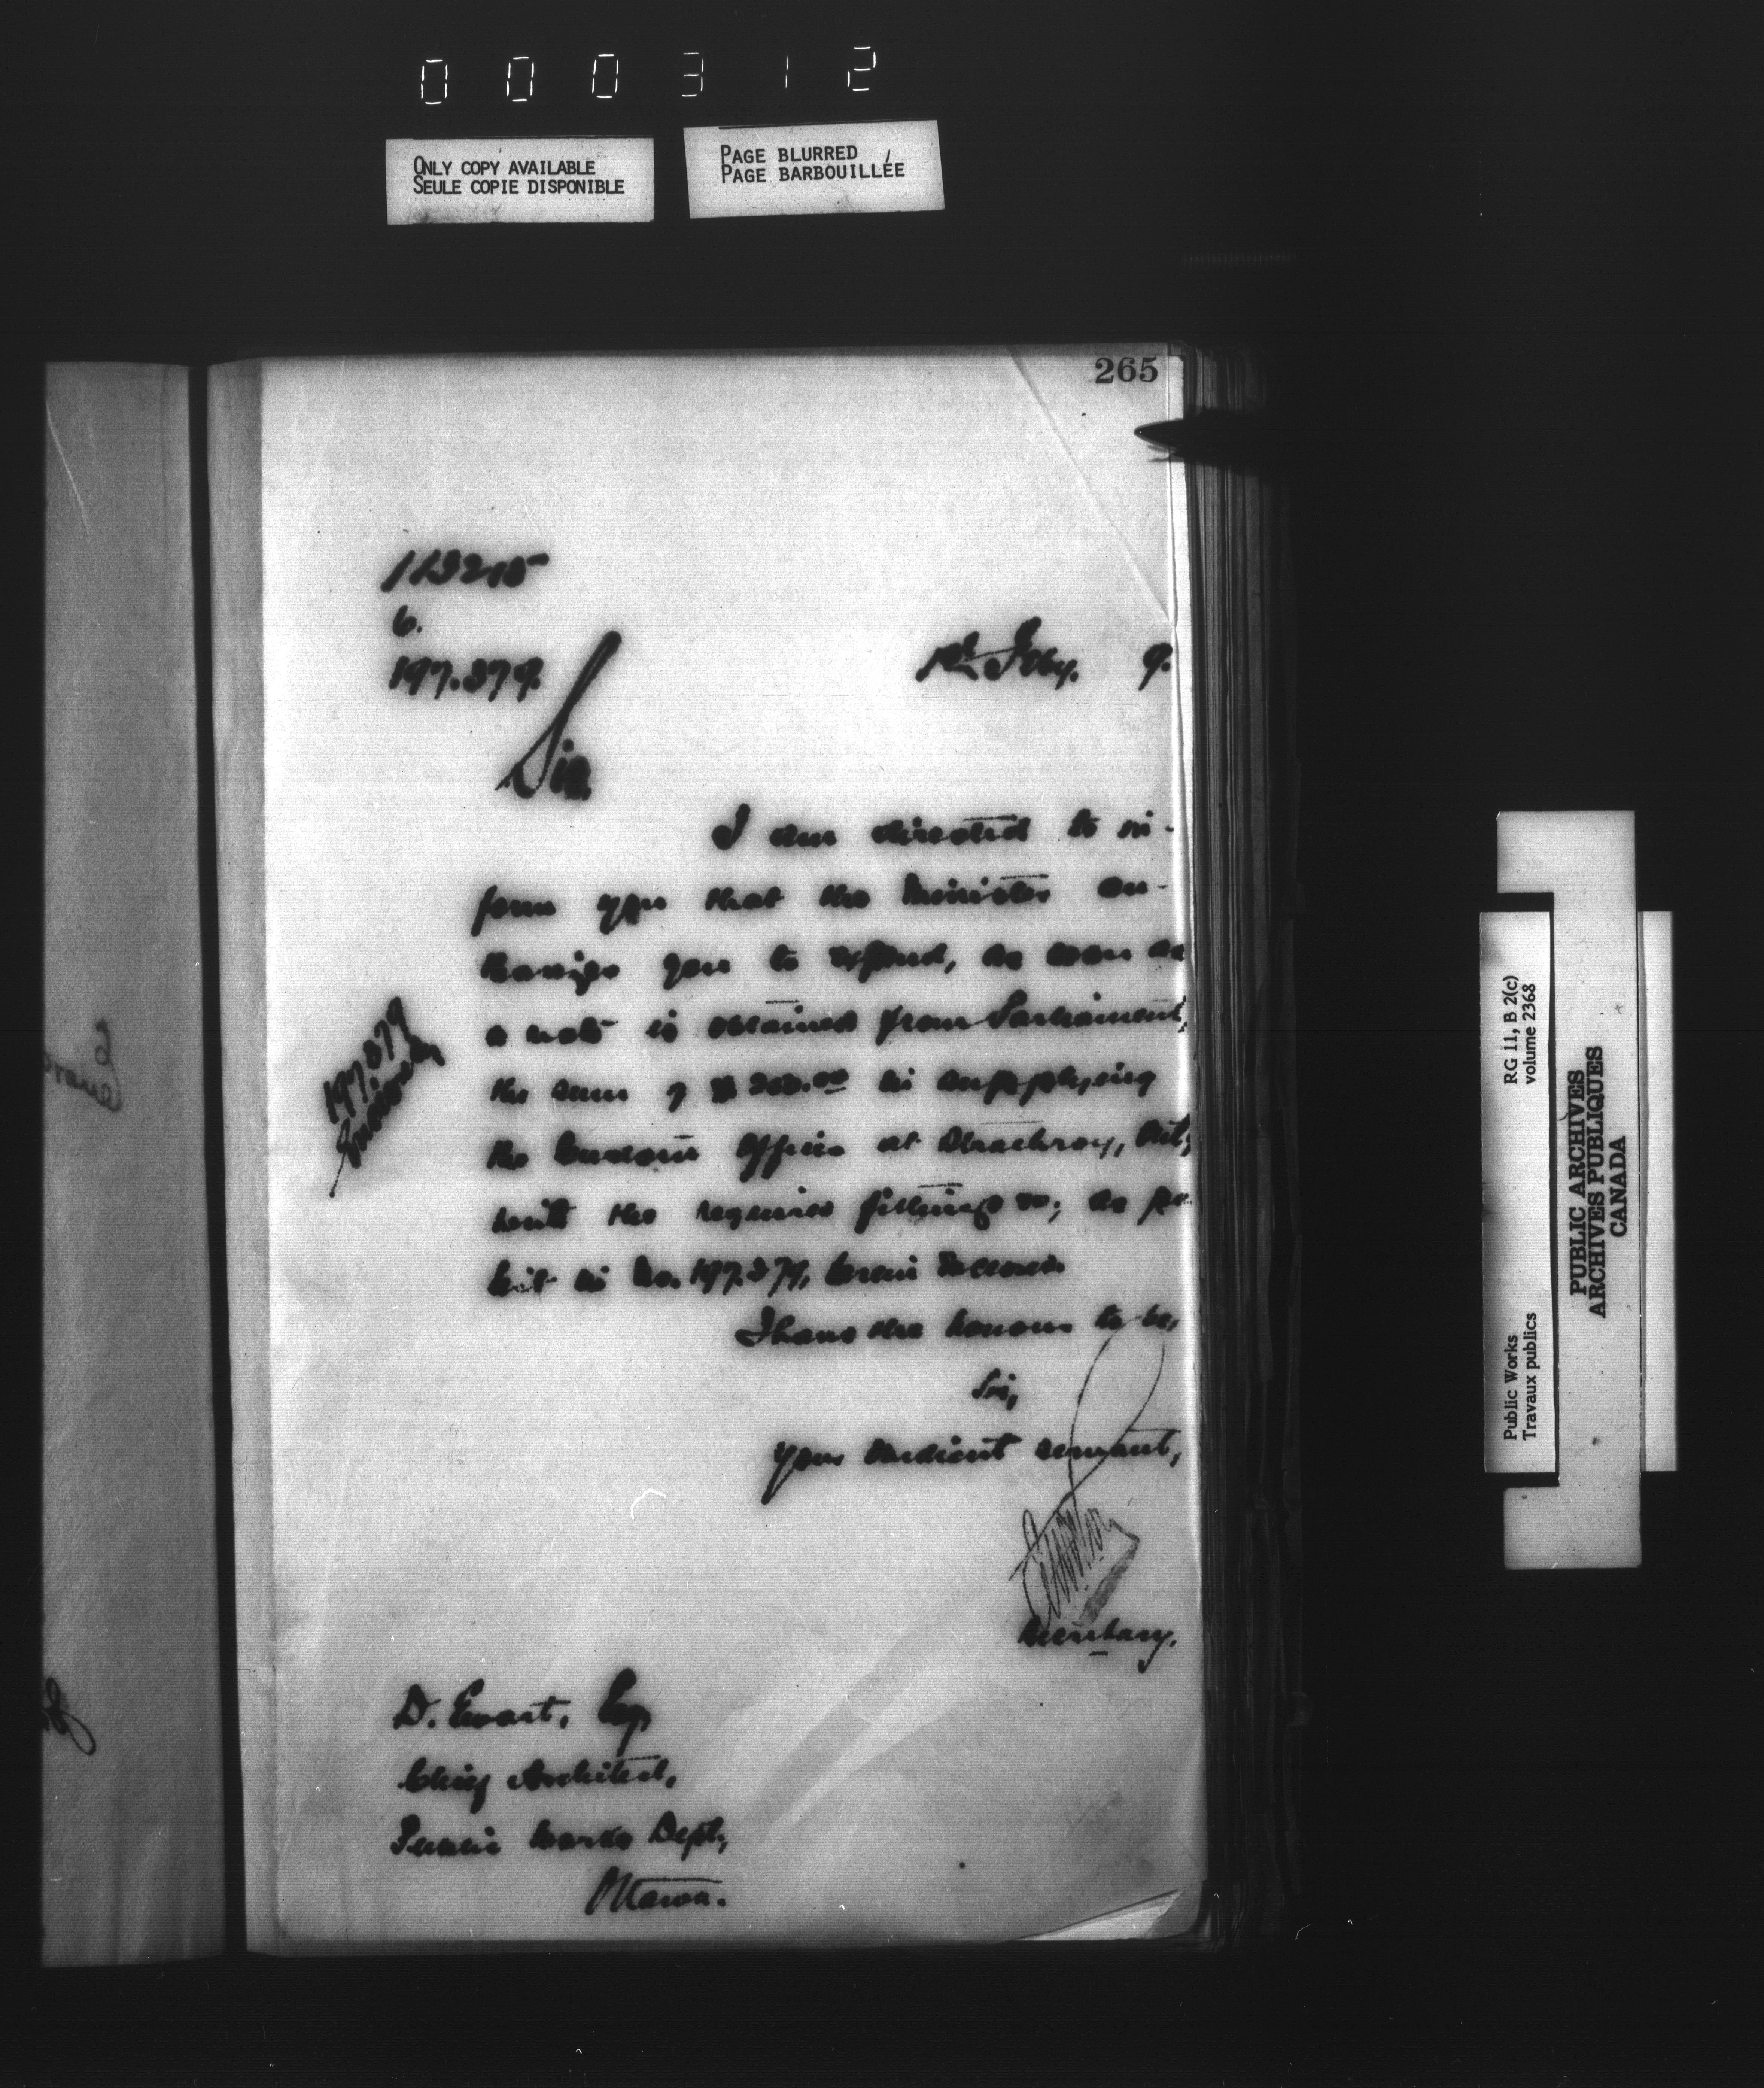 000312
ONLY COPY AVAILABLE
SEULE COPIE DISPONIBLE
PAGE BLURRED
PAGE BARBOUILLÉE
265
113215
6.
197.379.
1st Feby. 9.
Sir
I am directed to in-
form you that the Minister au-
thorizes you to expend, as soon as
a vote is obtained from Parliament,
the sum of $ 00 in supplying
the Customs Office at Strathroy, Ont,
with the required fittings &c, as per
list in No. 197.379, herein enclosed.
I have the honour to be,
Sir,
Your obedient servant,
Secretary.
197379
D. Ewart, Esq
Chief Architect,
Public Works Dept,
Ottawa.
RG 11, B 2(c)
volume 2368
Public Works
Travaux publics
PUBLIC ARCHIVES
ARCHIVES PUBLIQUES
CANADA